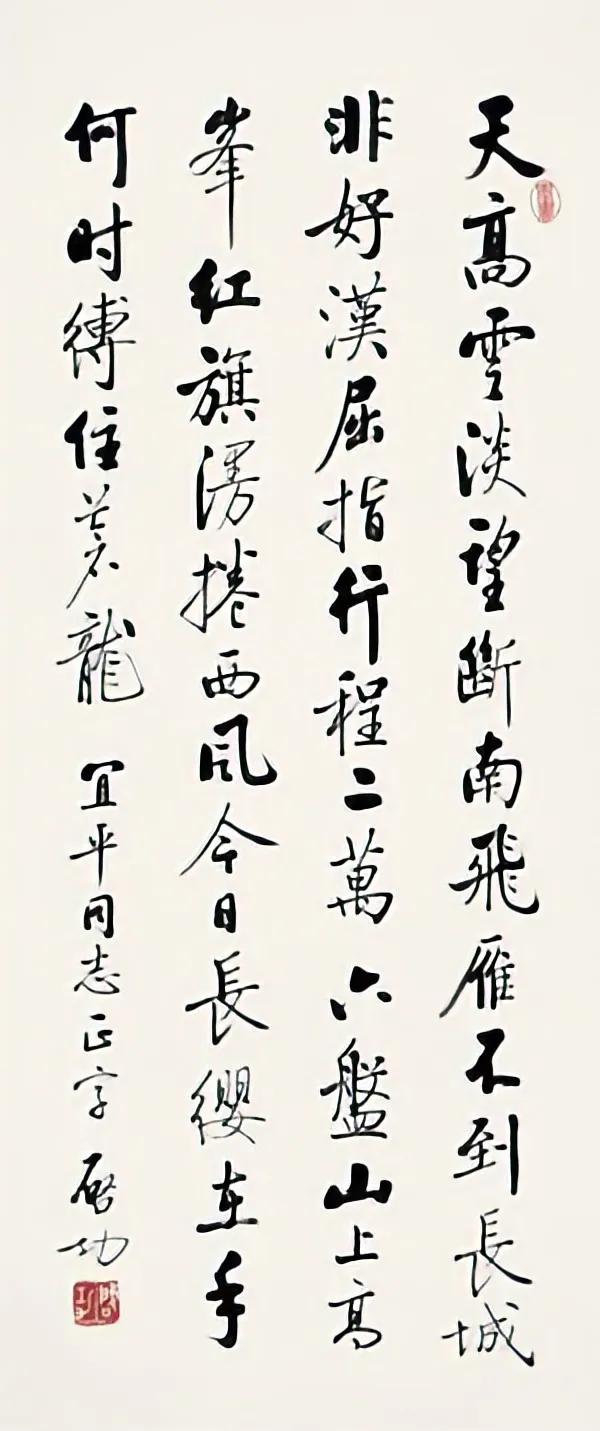 天高雲淡望斷南飛雁不到長城
非好漢屈指行程二萬六盤山上高
峯红旗漫捲西风今日長纓在手
何时縛住蒼龍 宜平同志正字 啓功